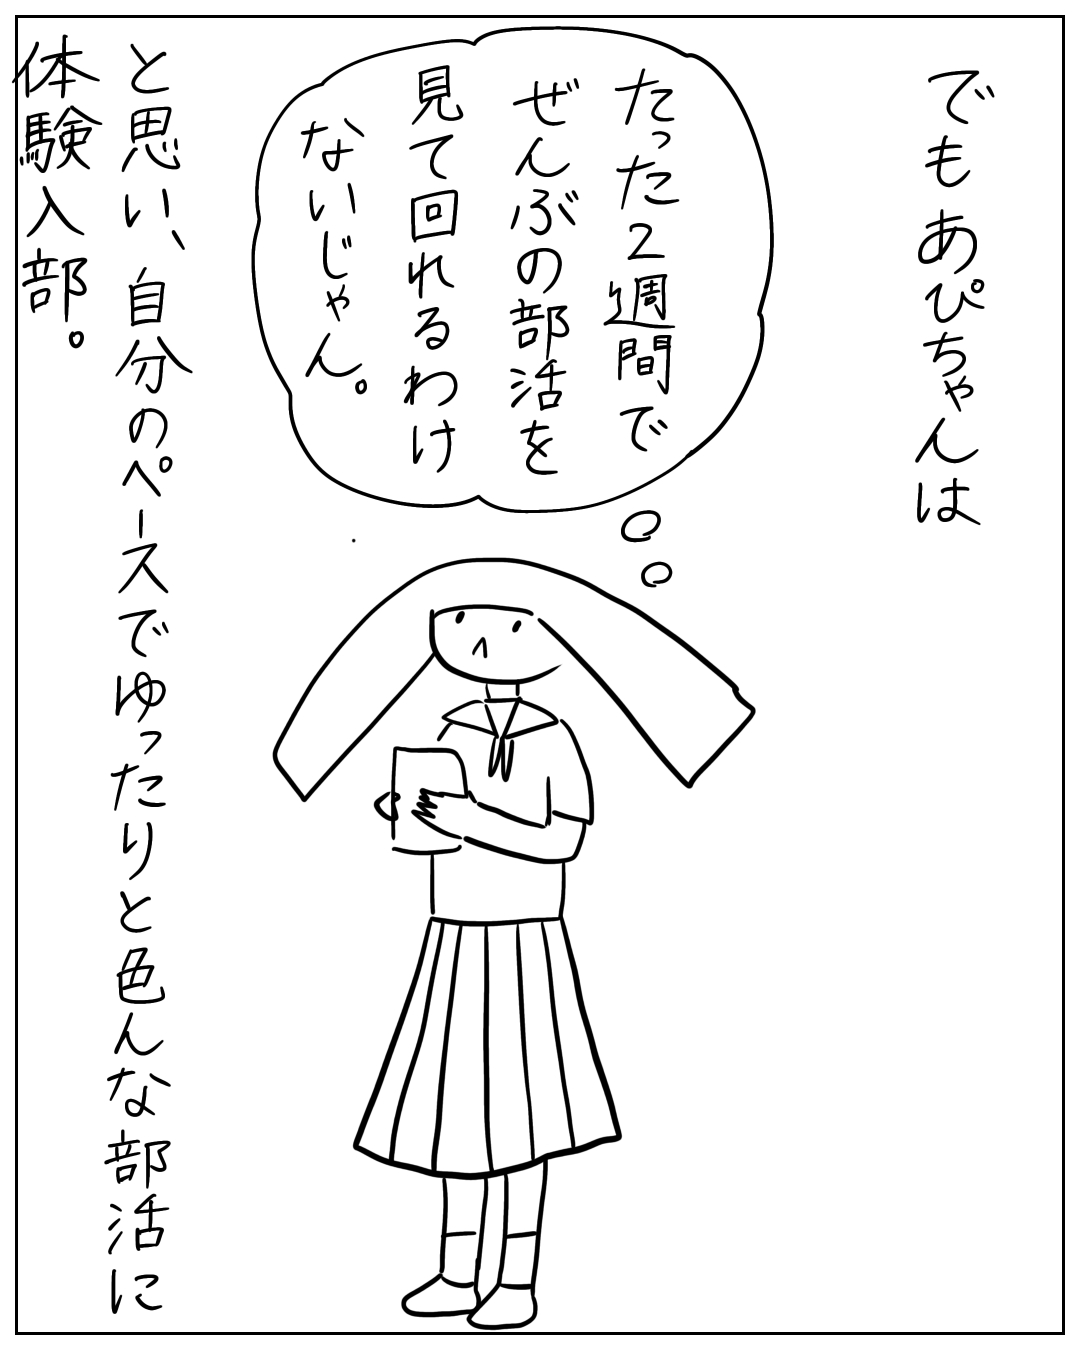 でもあぴちゃんは
たった2週間で
ぜんぶの部活を
見て回れるわけ
ないじゃん。
と思い、自分のペースでゆったりと色んな部活に
体験入部。